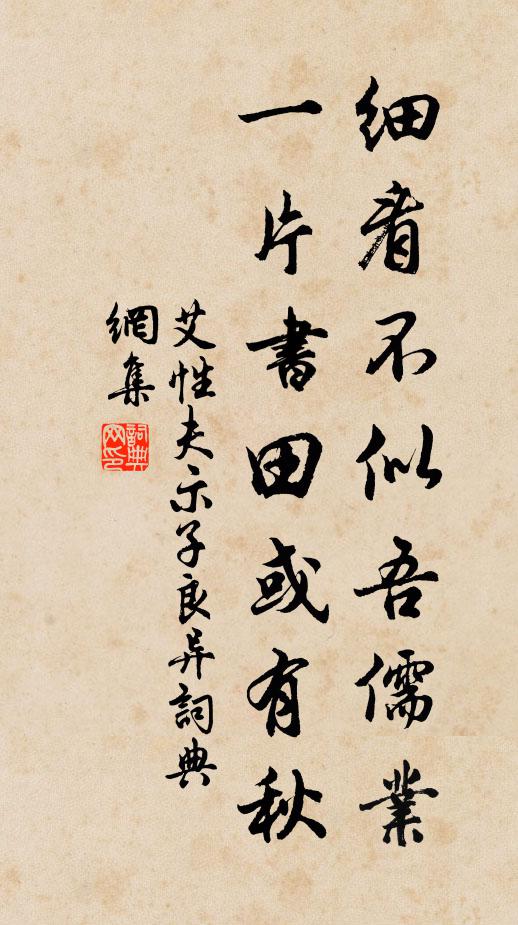 细看不似吾儒業
一片書田或有秋
艾性夫示子良异詞典
網集
詞典
网印